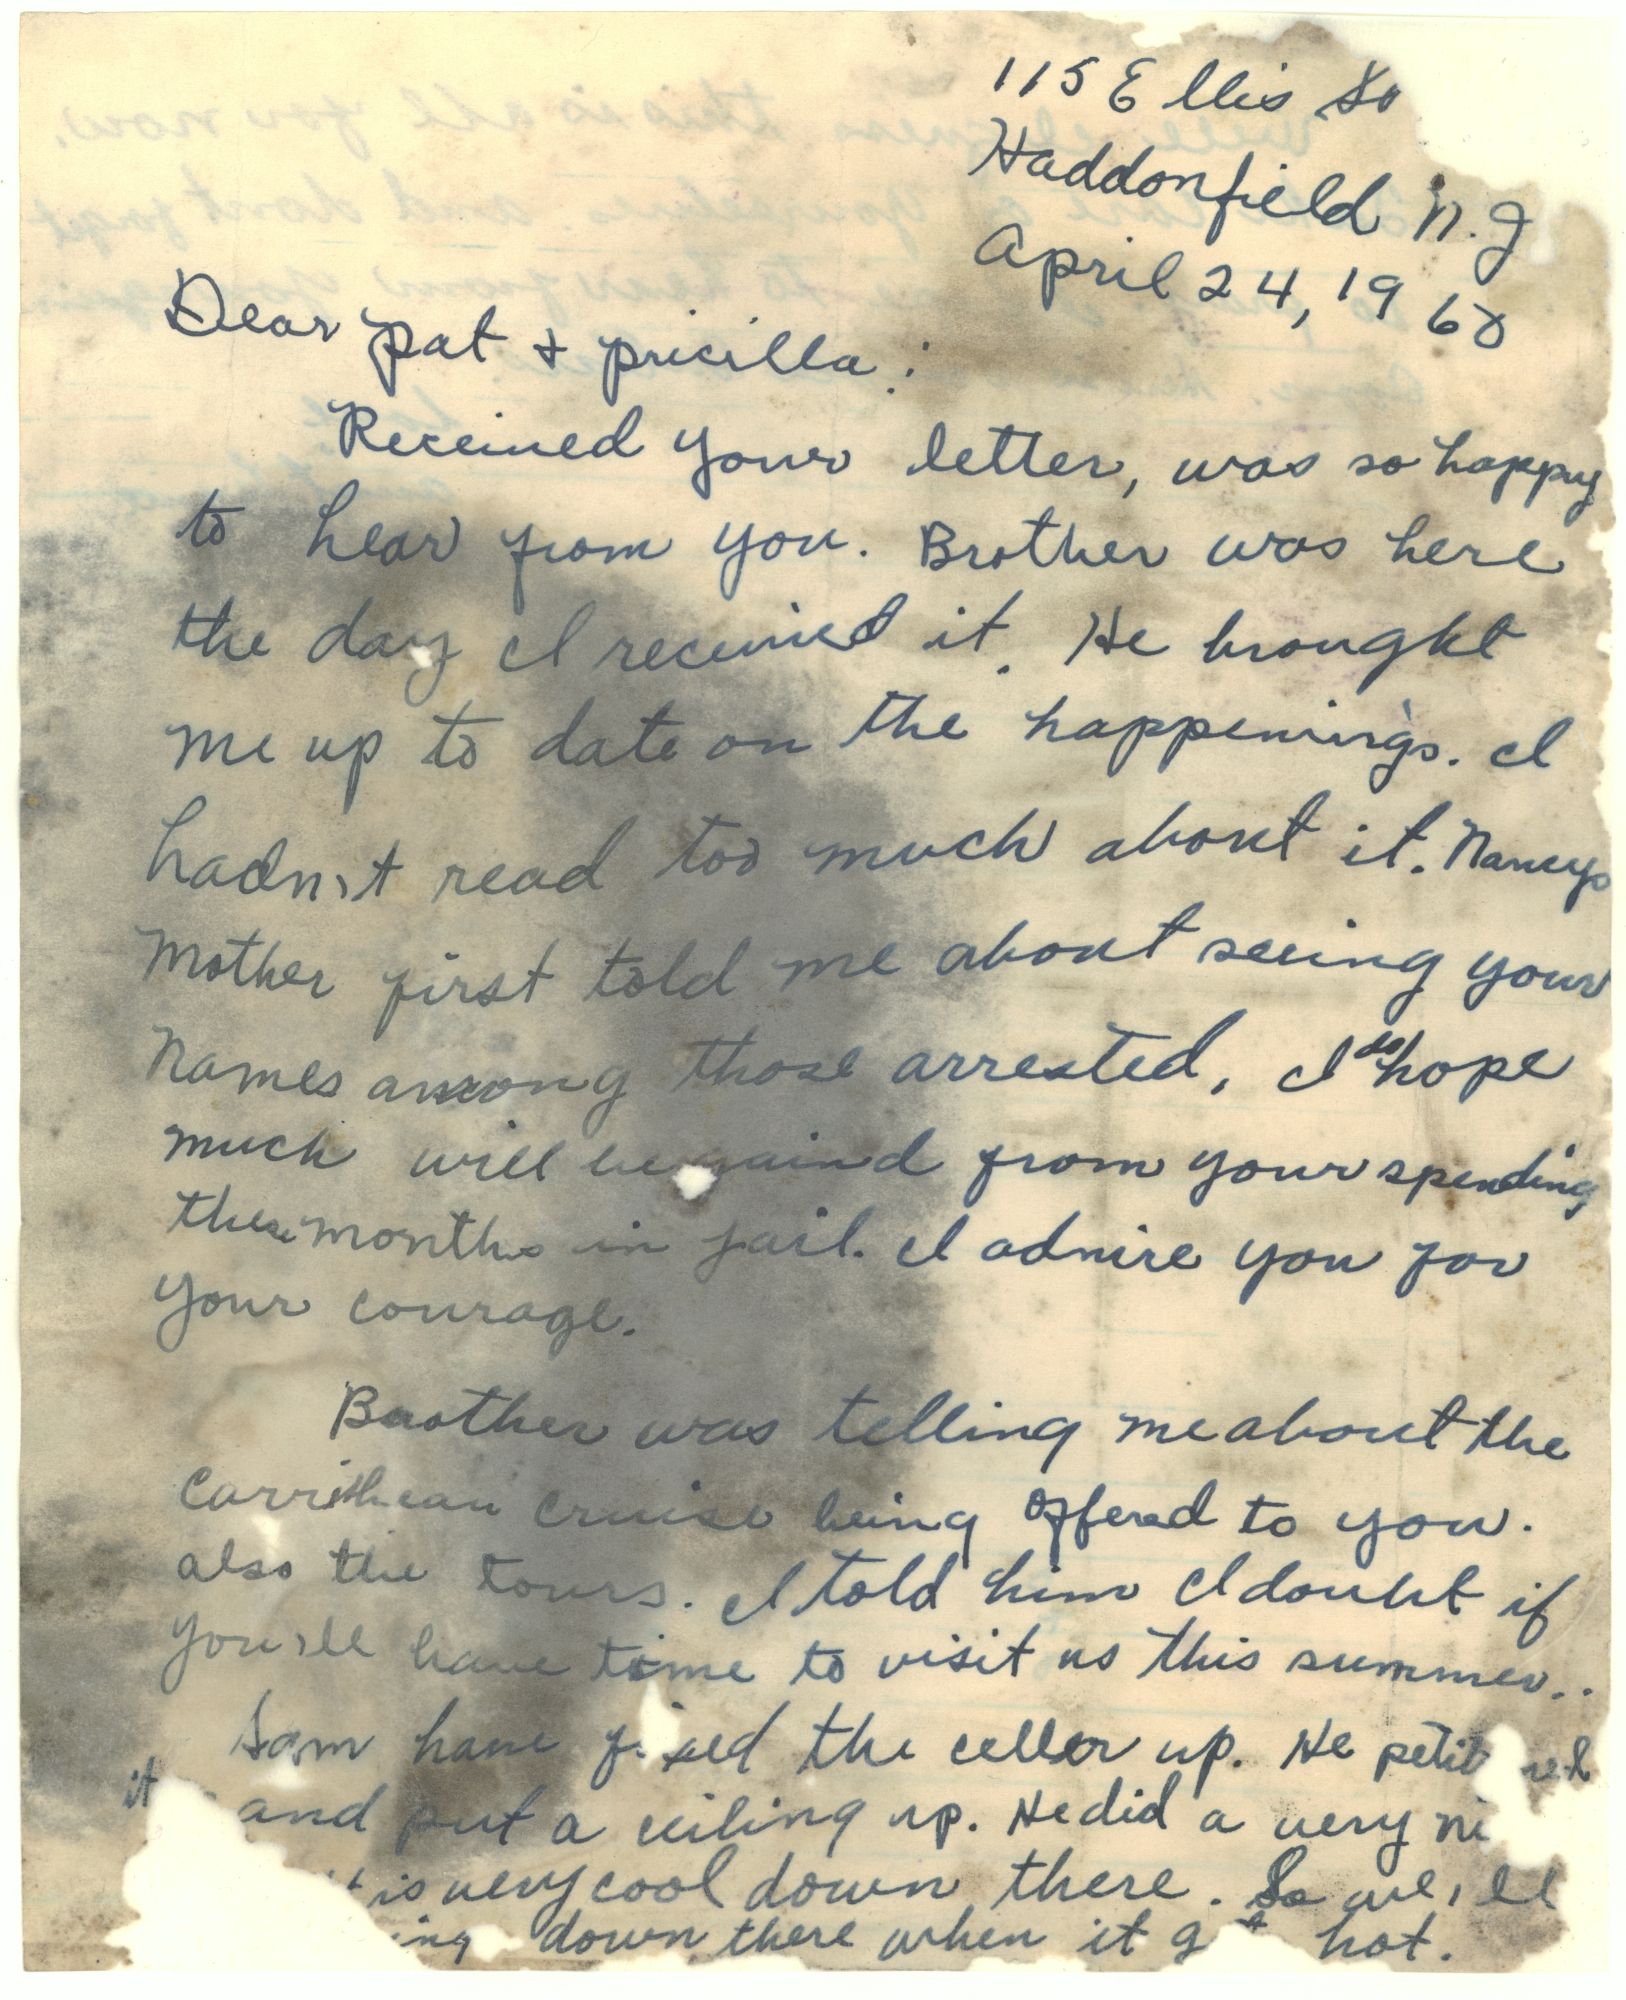 115 Ellis So
Haddonfield N.J
April 24, 1960
Dear Pat & Pricilla:
Received your letter, was so happy
to hear from you. Brother was here
the day I received it. He brought
me up to date on the happenings. I
hadn't read too much about it. Nancys
Mother first told me about seeing your
names among those arrested, I do hope
much will be gaind from your spending
these months in jail. I admire you for
your courage.
Brother was telling me about the
Carribbean cruise being offered to you.
also the tours. I told him I doubt if
you'll have time to visit us this summer..
Sam have fixed the celler up. He
it and put a ceiling up. He did a very
is very cool down there. So we'll
down there when it hot.